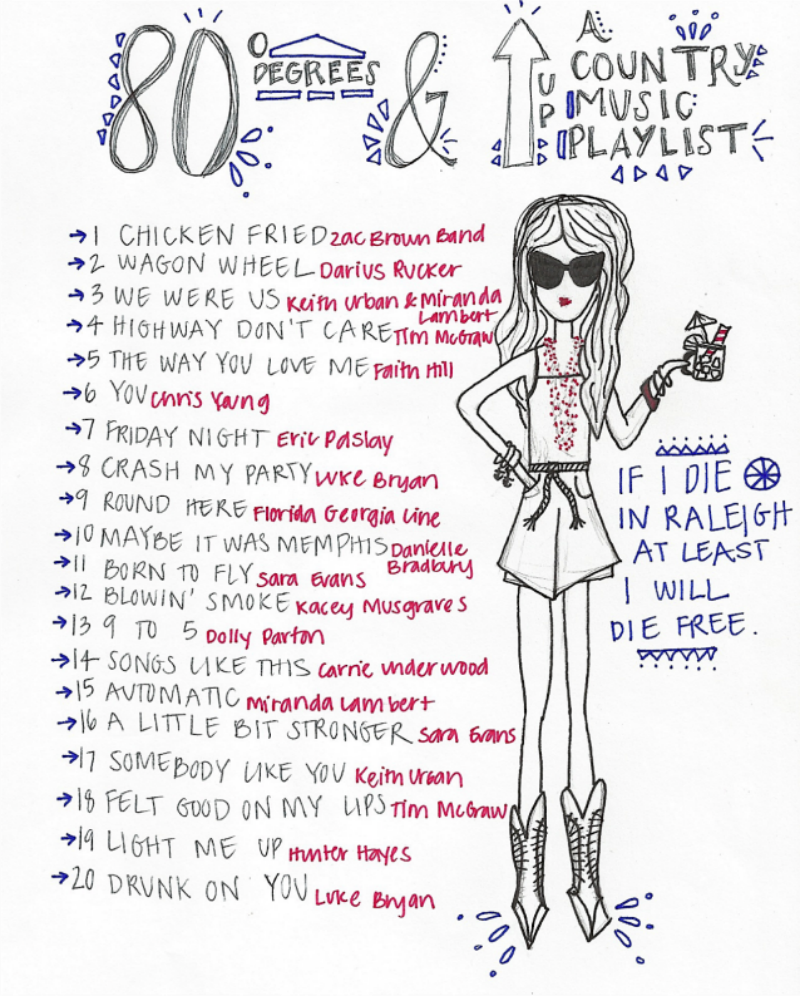 80 ° DEGREES & UP
A
COUNTRY
MUSIC
PLAYLIST
1 CHICKEN FRIED Zac Brown Band
2 WAGON WHEEL Darius Rucker
3 WE WERE US Keith Urban & Miranda
Lambert
4 HIGHWAY DON'T CARE Tim McGraw
5 THE WAY YOU LOVE ME Faith Hill
6 YOU Chris Young
7 FRIDAY NIGHT Eric Paslay
8 CRASH MY PARTY Luke Bryan
9 ROUND HERE Florida Georgia Line
10 MAYBE IT WAS MEMPHIS Danielle
Bradbury
11 BORN TO FLY Sara Evans
12 BLOWIN' SMOKE Kacey Musgraves
13 9 TO 5 Dolly Parton
14 SONGS LIKE THIS Carrie Underwood
15 AUTOMATIC Miranda Lambert
16 A LITTLE BIT STRONGER Sara Evans
17 SOMEBODY LIKE YOU Keith Urban
18 FELT GOOD ON MY LIPS Tim McGraw
19 LIGHT ME UP Hunter Hayes
20 DRUNK ON YOU Luke Bryan
IF I DIE
IN RALEIGH
AT LEAST
I WILL
DIE FREE.